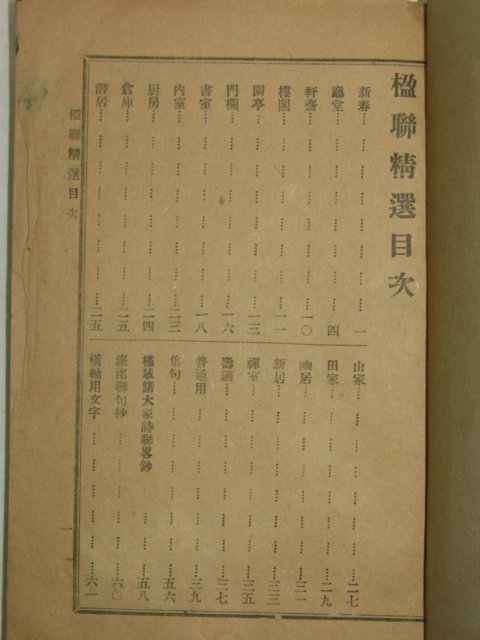 楹聯精選目次
新春 一
廳堂 四
軒齋 一〇
樓閣 一一
園亭 一三
門欄 一六
書室 一八
內室 二三
厨房 二四
倉庫 二五
潛居 二五
山家 二七
田家 二九
幽居 三一
新居 三三
禪室 三五
壽讌 三七
普通用 三九
集句 五六
槿域諸大家詩聯畧鈔 五八
濂洛聯句抄 六〇
橫軸用文字 六一
楹聯精選目次
一